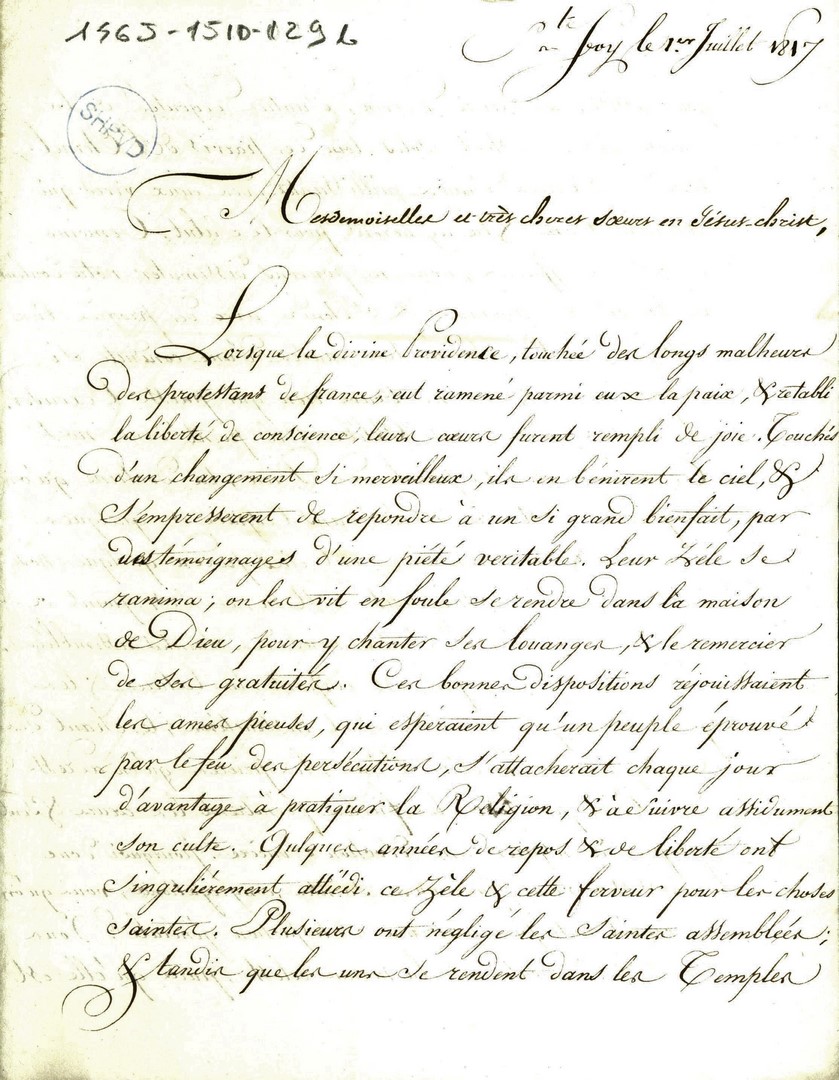 1965-1510-129 L
Ste foy le 1er Juillet 1817
SHPVD
Mesdemoiselles et très cheres sœurs en Jésus-christ,
Lorsque la divine Providence, touchée des longs malheurs
des protestans de france, eut ramené parmi eux la paix, & rétabli
la liberté de conscience, leurs cœurs furent rempli de joie. Touchés
d'un changement si merveilleux, ils en bénirent le ciel, &
s'empresserent de repondre à un si grand bienfait, par
des témoignages d'une piété veritable. Leur Zéle se
ranima; on les vit en foule se rendre dans la maison
de Dieu, pour y chanter ses louanges, & le remercier
de ses gratuités. Ces bonnes dispositions réjouissaient
les ames pieuses, qui espéraient qu'un peuple éprouvé
par le feu des persécutions, s'attacherait chaque jour
d'avantage à pratiquer la Religion, & à suivre assidument
son culte. Quelques années de repos & de liberté ont
singuliérement attiédi ce Zèle & cette ferveur pour les choses
saintes. Plusieurs ont négligé les saintes assemblées;
& tandis que les uns se rendent dans les Temples